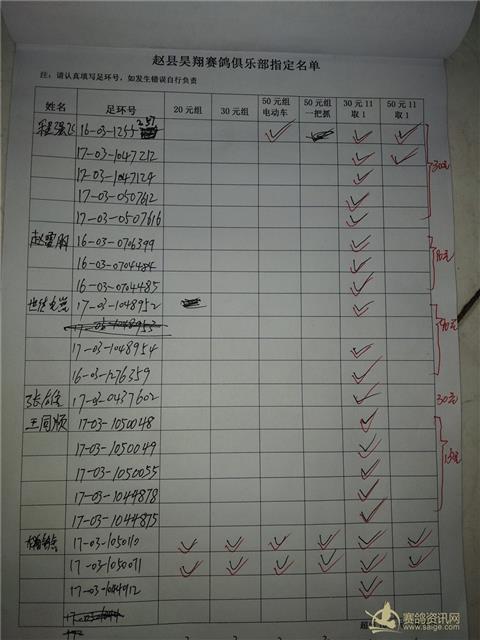 赵县昊翔赛鸽俱乐部指定名单
注：请认真填写足环号，如发生错误自行负责
姓名 足环号 20元组 30元组 50元组电动车 50元组一把抓 30元11取1 50元11取1
16-03-1255257 ✓ ✓ ✓
17-03-1047212 ✓ ✓
17-03-1047124 ✓
17-03-0507612 ✓
17-03-0507616 ✓
赵雷刚 16-03-0706399 ✓
16-03-0704484 ✓
16-03-0704485 ✓
17-03-1048952 ✓
17-03-1048953
17-03-1048954 ✓
16-03-1276359 ✓
17-03-0437602 ✓ 30元
王同顺 17-03-1050048 ✓
17-03-1050049 ✓
17-03-1050055 ✓
17-03-1044878 ✓
17-03-1044875 ✓
17-03-1050110 ✓ ✓ ✓ ✓ ✓ ✓
17-03-1050071 ✓ ✓ ✓ ✓ ✓ ✓
17-03-1044912 ✓
赛鸽资讯网
www.saige.com